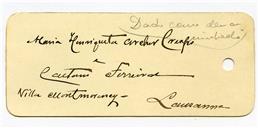 Dado como
Maria Henriqueta Archer Crespo
a
Caetano Ferreira
Villa Montmorency - Lausanne